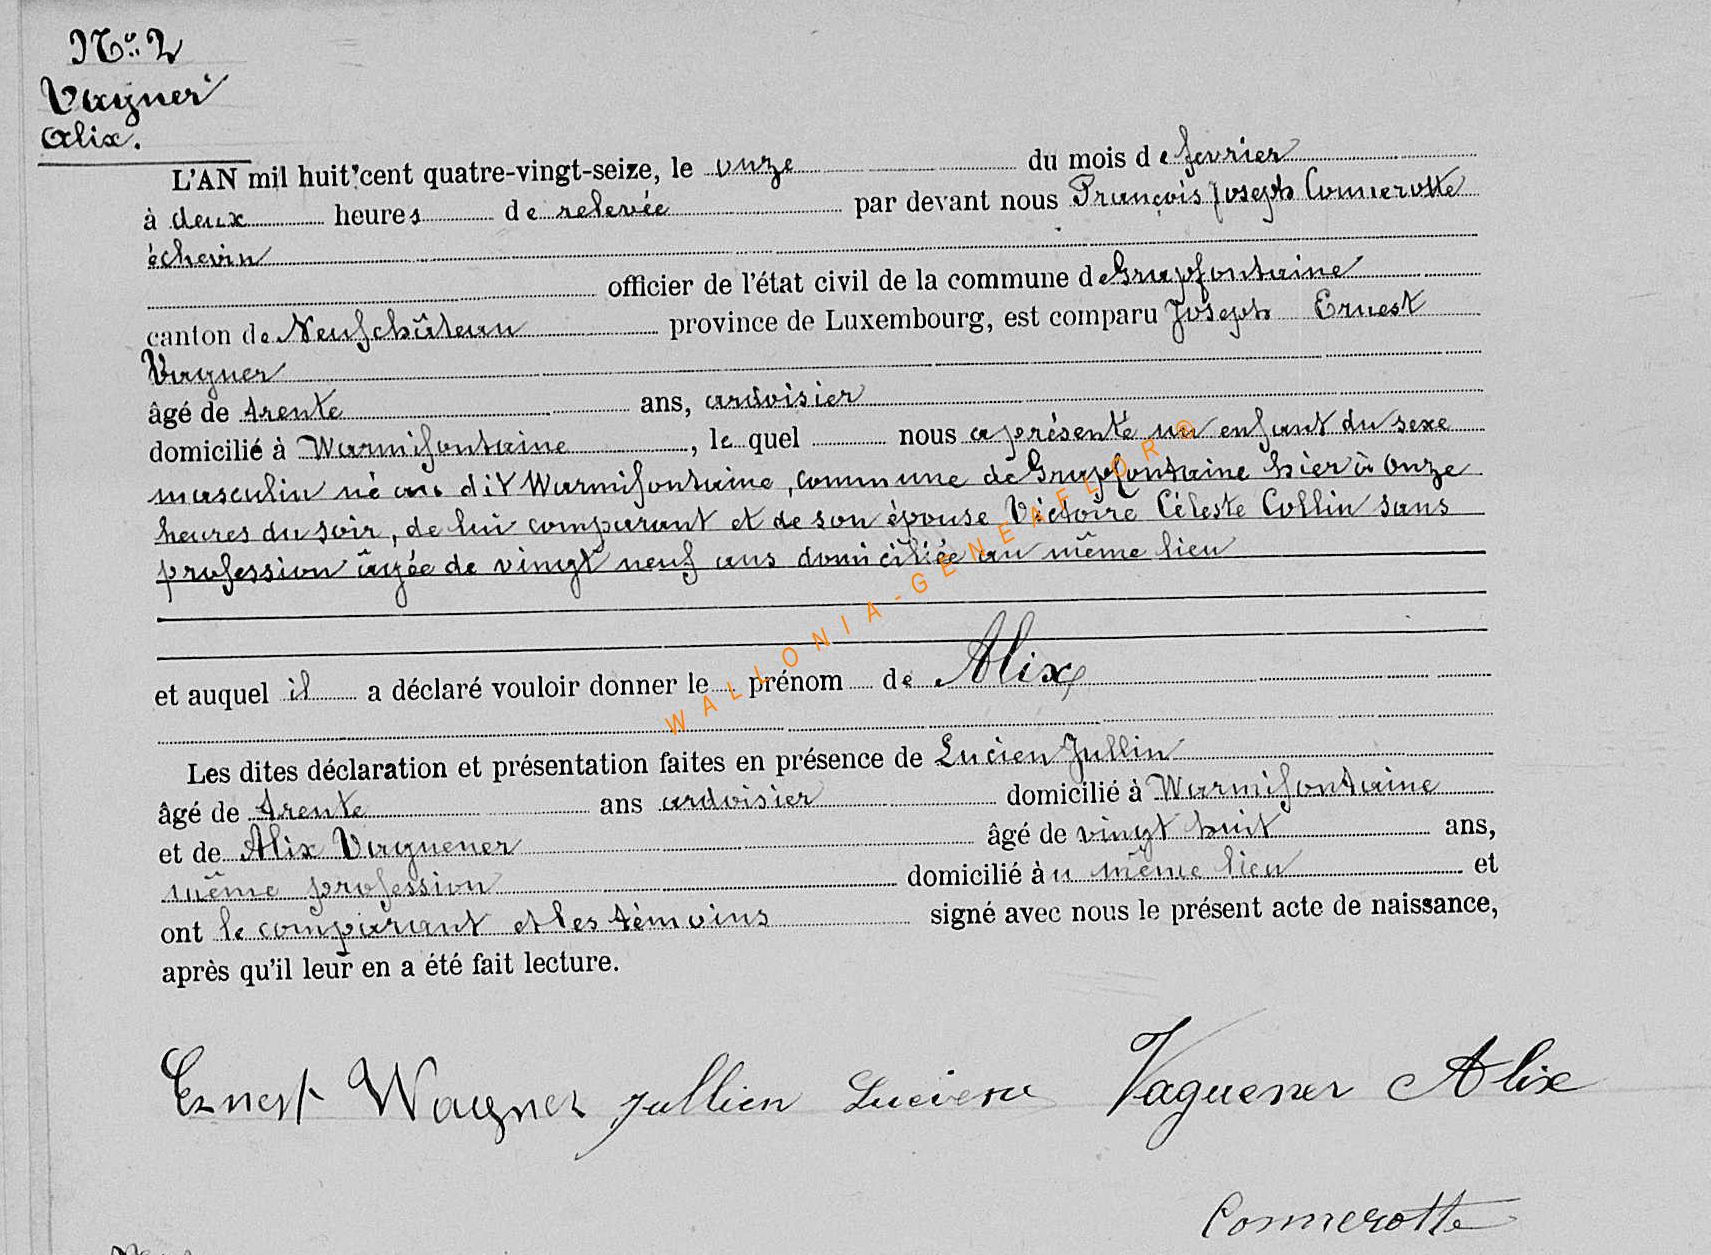 N° 2
Vagner
Alix.
L'AN mil huit cent quatre-vingt-seize, le onze du mois de fevrier
à deux heures de relevée par devant nous François Joseph Comerotte
échevin
officier de l'état civil de la commune de Grapfontaine
canton de Neufchâteau province de Luxembourg, est comparu Joseph Ernest
Vagner
âgé de trente ans, ardoisier
domicilié à Warmifontaine, lequel nous a présenté un enfant du sexe
masculin né au dit Warmifontaine, commune de Grapfontaine hier à onze
heures du soir, de lui comparant et de son épouse Victoire Céleste Collin sans
profession âgée de vingt neuf ans domiciliée au même lieu
et auquel il a déclaré vouloir donner le prénom de Alix
WALLONIA-GENEAFLOR ©
Les dites déclaration et présentation faites en présence de Lucien Jullin
âgé de trente ans ardoisier domicilié à Warmifontaine
et de Alix Vaguener âgé de vingt huit ans,
même profession domicilié au même lieu et
ont le comparant et les témoins signé avec nous le présent acte de naissance,
après qu'il leur en a été fait lecture.
Ernest Wagner Jullien Lucien Vaguener Alix
Connerotte